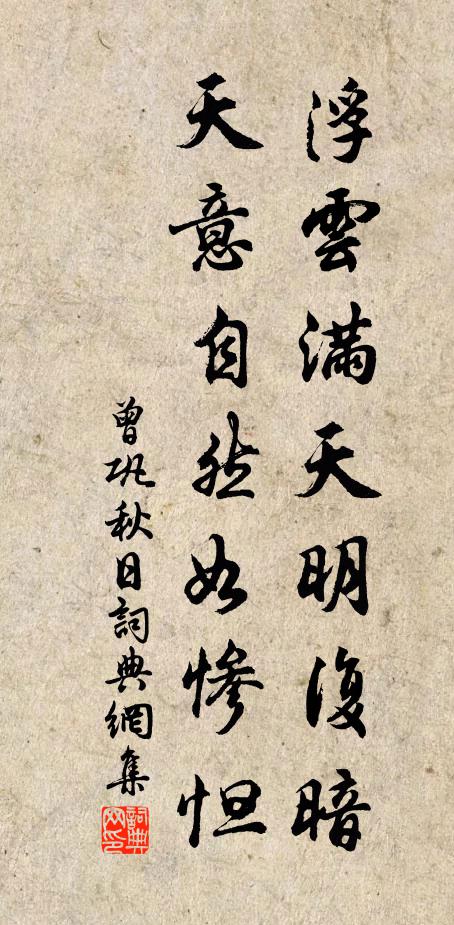 浮雲滿天明復暗
天意自然如慘怛
曾巩秋日詞典網集
詞典網印